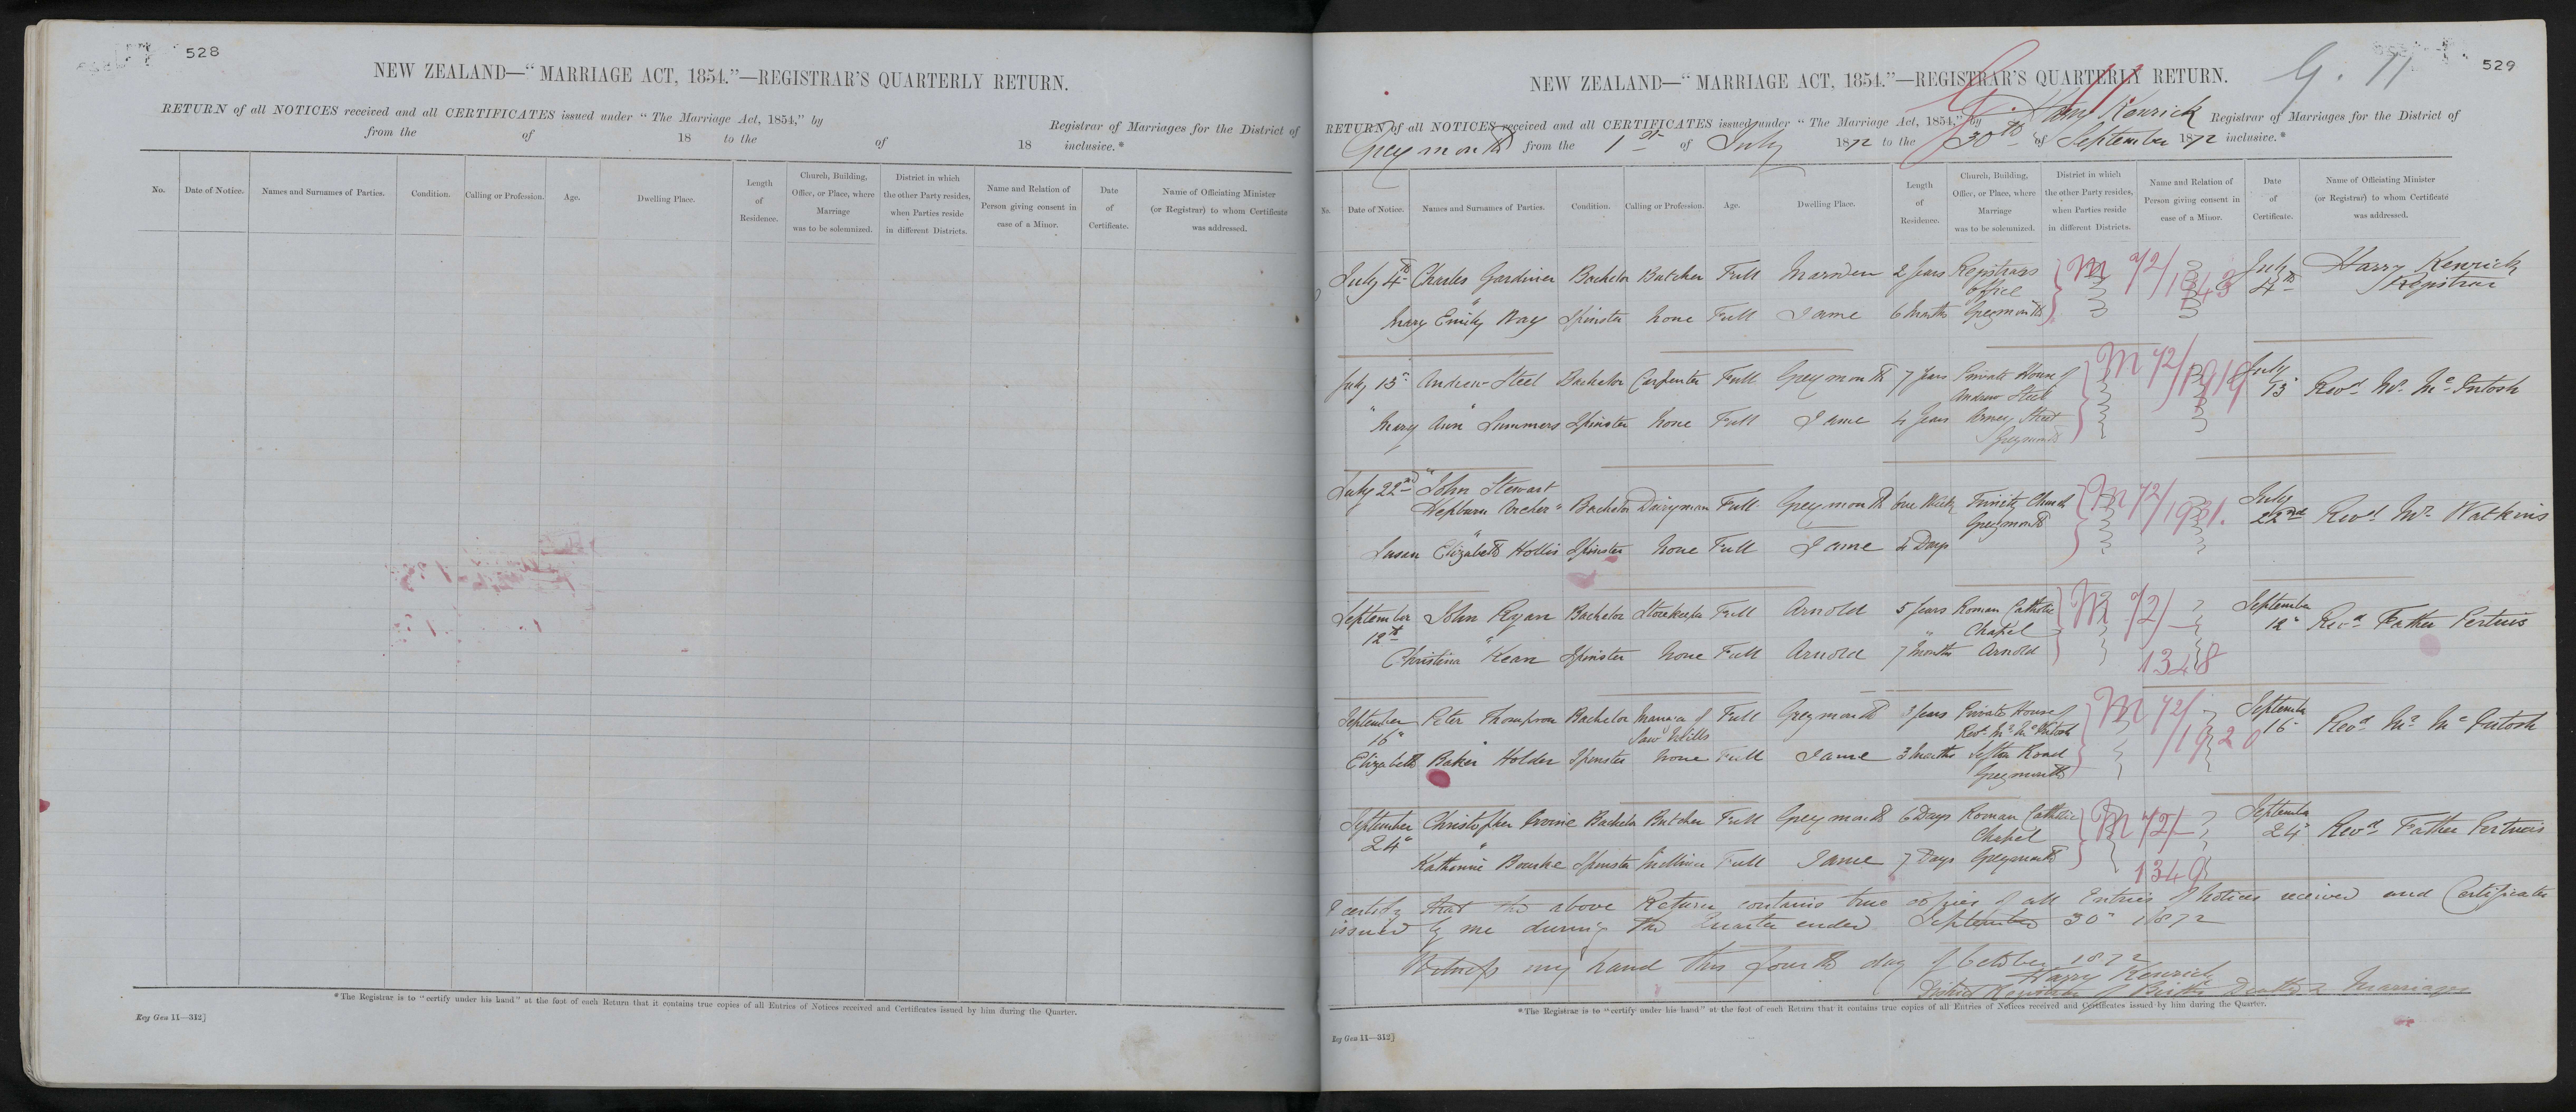 528
NEW ZEALAND—“MARRIAGE ACT, 1854.”—REGISTRAR'S QUARTERLY RETURN.
RETURN of all NOTICES received and all CERTIFICATES issued under “The Marriage Act, 1854,” by Registrar of Marriages for the District of
from the of 18 to the of 18 inclusive.*
No. Date of Notice. Names and Surnames of Parties. Condition. Calling or Profession. Age. Dwelling Place. Length of Residence. Church, Building, Office, or Place, where Marriage was to be solemnized. District in which the other Party resides, when Parties reside in different Districts. Name and Relation of Person giving consent in case of a Minor. Date of Certificate. Name of Officiating Minister (or Registrar) to whom Certificate was addressed.
*The Registrar is to “certify under his hand” at the foot of each Return that it contains true copies of all Entries of Notices received and Certificates issued by him during the Quarter.
Reg Gen 11—312]
529
G. 11
NEW ZEALAND—“MARRIAGE ACT, 1854.”—REGISTRAR'S QUARTERLY RETURN.
RETURN of all NOTICES received and all CERTIFICATES issued under “The Marriage Act, 1854,” by Harry Kenrick Registrar of Marriages for the District of
Greymouth from the 1st of July 1872 to the 30th of September 1872 inclusive.*
No. Date of Notice. Names and Surnames of Parties. Condition. Calling or Profession. Age. Dwelling Place. Length of Residence. Church, Building, Office, or Place, where Marriage was to be solemnized. District in which the other Party resides, when Parties reside in different Districts. Name and Relation of Person giving consent in case of a Minor. Date of Certificate. Name of Officiating Minister (or Registrar) to whom Certificate was addressed.
July 4th Charles Gardiner Bachelor Butcher Full Marsden 2 Years Registrars M 72/1343 July Harry Kenrick
office 4th Registrar
Mary Emily Way Spinster None Full Same 6 Months Greymouth
July 15" Andrew Steel Bachelor Carpenter Full Greymouth 7 Years Private House of M 72/1919 July
Andrew Steel 15" Revd Mr. McIntosh
" Mary Ann Summers Spinster None Full Same 4 Years Arney Street
Greymouth
July 22nd John Stewart
Hepburn Archer Bachelor Dairyman Full Greymouth One Week Trinity Church M 72/1931. July
Greymouth 22nd Revd Mr. Watkins
Susan Elizabeth Hollis Spinster None Full Same 4 Days
September John Ryan Bachelor Storekeeper Full Arnold 5 Years Roman Catholic M 72/ September
12th Chapel 12" Revd Father Pertuis
Christina Kean Spinster None Full Arnold 7 Months Arnold 1348
September Peter Thompson Bachelor Manager of Full Greymouth 3 Years Private House of M 72/1920 September
16" Saw Mills Revd Mr McIntosh 16" Revd Mr McIntosh
Elizabeth Baker Holder Spinster None Full Same 3 Months Sefton Road
Greymouth
September Christopher Bachelor Butcher Full Greymouth 6 Days Roman Catholic M 72/ September
24" Chapel 24" Revd Father Pertuis
Katherine Bourke Spinster Milliner Full Same 7 Days Greymouth 1349
I certify that the above Return contains true copies of all Entries of Notices received and Certificates
issued by me during the Quarter ended September 30" 1872
Witness my hand this fourth day of October 1872
Harry Kenrick
District Registrar of Births Deaths & Marriages
*The Registrar is to “certify under his hand” at the foot of each Return that it contains true copies of all Entries of Notices received and Certificates issued by him during the Quarter.
Reg Gen 11—312]